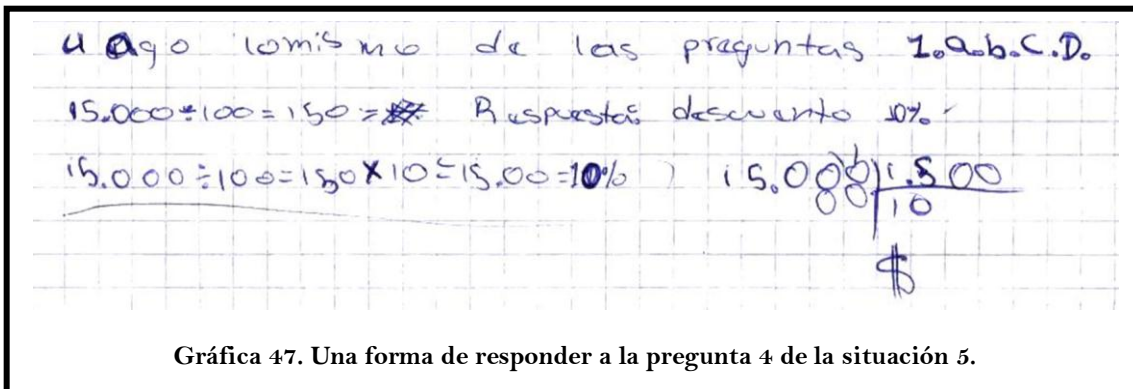 4 ago lomismo de las preguntas 1.a.b.C.D.
15.000÷100=150= Respuesta: descuento 10%
15.000÷100=150X10=15.00=10% 15.000 1.500
00 10
$
Gráfica 47. Una forma de responder a la pregunta 4 de la situación 5.